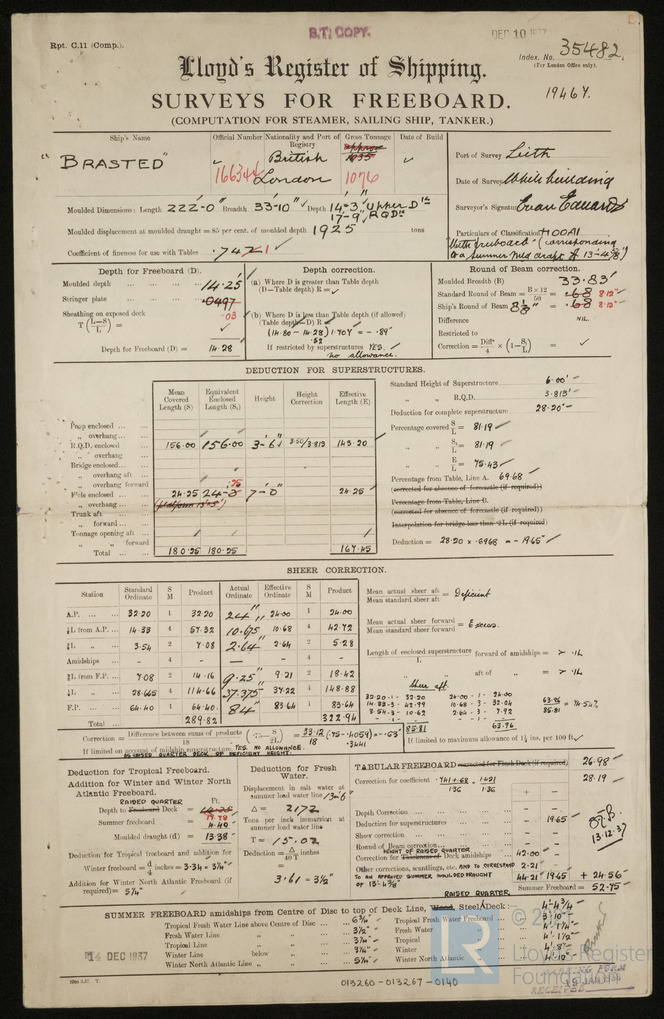 B.T. COPY.
DEC 10 1937
Rpt. C.11 (Comp.).
Index. No. 35482.
(For London Office only).
Lloyd's Register of Shipping.
19467.
SURVEYS FOR FREEBOARD.
(COMPUTATION FOR STEAMER, SAILING SHIP, TANKER.)
Ship's Name
Official Number
Nationality and Port of Registry
Gross Tonnage
Date of Build
"BRASTED"
British
London
1035
1076
Port of Survey Leith
Date of Survey While building
Surveyor's Signature
Particulars of Classification +100A1
"With freeboard" (corresponding
to a Summer mld draft of 13'-4⅝")
Moulded Dimensions: Length 222'-0" Breadth 33'-10" Depth 14'-3" Upper Dk
17'-9" RQDk
Moulded displacement at moulded draught = 85 per cent. of moulded depth 1925 tons
Coefficient of fineness for use with Tables .742
Depth for Freeboard (D).
Moulded depth 14.25
Stringer plate .0497
.03
Sheathing on exposed deck
T (L-S/L) =
Depth for Freeboard (D) = 14.28
Depth correction.
(a) Where D is greater than Table depth
(D—Table depth) R =
(b) Where D is less than Table depth (if allowed)
(Table depth—D) R
(14.80 - 14.28) 1.704 = -.89"
.52
If restricted by superstructures YES.
no allowance.
Round of Beam correction.
Moulded Breadth (B) 33.83'
Standard Round of Beam = B×12/50 = .68 8.12"
Ship's Round of Beam 8⅛" = .68 8.12"
Difference NIL.
Restricted to
Correction = Diff/4 × (1-S₁/L) =
DEDUCTION FOR SUPERSTRUCTURES.
Mean Covered Length (S)
Equivalent Enclosed Length (S₁)
Height
Height Correction
Effective Length (E)
Poop enclosed
„ overhang
R.Q.D. enclosed 156.00 156.00 3'-6" 3.50/3.813 143.20
„ overhang
Bridge enclosed
„ overhang aft
„ overhang forward
F'cle enclosed 24.25 24-3 .25 7'-0" 24.25
„ overhang
Trunk aft
„ forward
Tonnage opening aft
„ „ forward
Total 180.25 180.25 167.45
Standard Height of Superstructure 6.00'
„ „ R.Q.D. 3.813'
Deduction for complete superstructure 28.20"
Percentage covered S/L = 81.19
„ „ S₁/L = 81.19
„ „ E/L = 75.43
Percentage from Table, Line A. 69.68
(corrected for absence of forecastle (if required))
Percentage from Table, Line B.
(corrected for absence of forecastle (if required))
Interpolation for bridge less than .2L (if required)
Deduction = 28.20 × .6968 = -19.65"
SHEER CORRECTION.
Station
Standard Ordinate
S M
Product
Actual Ordinate
Effective Ordinate
S M
Product
A.P. 32.20 1 32.20 24" 24.00 1 24.00
⅙L from A.P. 14.33 4 57.32 10.675 10.68 4 42.72
⅓L „ 3.54 2 7.08 2.64" 2.64 2 5.28
Amidships - 4 - - - 4 -
⅓L (from F.P. 7.08 2 14.16 9.25" 9.21 2 18.42
⅙L „ 28.665 4 114.66 37.375 37.22 4 148.88
F.P. 64.40 1 64.40 84" 83.64 1 83.64
Total 289.82 322.94
Mean actual sheer aft / Mean standard sheer aft = Deficient
Mean actual sheer forward / Mean standard sheer forward = Excess.
Length of enclosed superstructure forward of amidships = > .1L
L
„ „ aft of „ = > .1L
Sheer aft.
32.20 - 1 - 32.20 24.00 - 1 - 24.00
14.33 - 3 - 42.99 10.68 - 3 - 32.04
3.54 - 3 - 10.62 2.64 - 3 - 7.92
85.81 63.96
63.96/85.81 = 74.54%
Correction = Difference between sums of products/18 (.75 - S/2L) = 33.12/18 (.75 - .4059) = -.63"
.3441
If limited on account of midship superstructure. YES. NO ALLOWANCE.
AS RAISED QUARTER DECK OF DEFICIENT HEIGHT.
If limited to maximum allowance of 1½ ins. per 100 ft.
Deduction for Tropical Freeboard.
Addition for Winter and Winter North Atlantic Freeboard.
RAISED QUARTER
Ft.
Depth to Freeboard Deck = 17.78
Summer freeboard = 4.40
Moulded draught (d) = 13.38
Deduction for Tropical freeboard and addition for
Winter freeboard = d/4 inches = 3.34 = 3¼"
Addition for Winter North Atlantic Freeboard (if required) = 5¼"
Deduction for Fresh Water.
Displacement in salt water at summer load water line 13'-6"
Δ = 2172
Tons per inch immersion at summer load water line
T = 15.02
Deduction = Δ/40T inches =
3.61 = 3½"
TABULAR FREEBOARD corrected for Flush Deck (if required) 26.98
Correction for coefficient .741+.68/1.36 = 1.421/1.36 28.19
+ -
Depth Correction - -
Deduction for superstructures - 19.65
Sheer correction - -
Round of Beam correction - -
HEIGHT OF RAISED QUARTER
Correction for Thickness of Deck amidships 42.00 -
Other corrections, scantlings, etc. AND TO CORRESPOND 2.21
TO AN APPROVED SUMMER MOULDED DRAUGHT
OF 13'-4⅝"
44.21 19.65 + 24.56
Summer Freeboard = 52.75
13.12.37
RAISED QUARTER
SUMMER FREEBOARD amidships from Centre of Disc to top of Deck Line, Wood, Steel Deck: 4'-4¾"
Tropical Fresh Water Line above Centre of Disc 6¾" Tropical Fresh Water Freeboard 3'-10"
Fresh Water Line „ „ 3½" Fresh Water „ 4'-1¼"
Tropical Line „ „ 3¼" Tropical „ 4'-1½"
Winter Line below „ 3¼" Winter „ 4'-8"
Winter North Atlantic Line „ „ 5¼" Winter North Atlantic „ 4'-10"
14 DEC 1937
013260-013267-0140
LR
© 20
Lloyd's Register
Foundation
RECEIVED